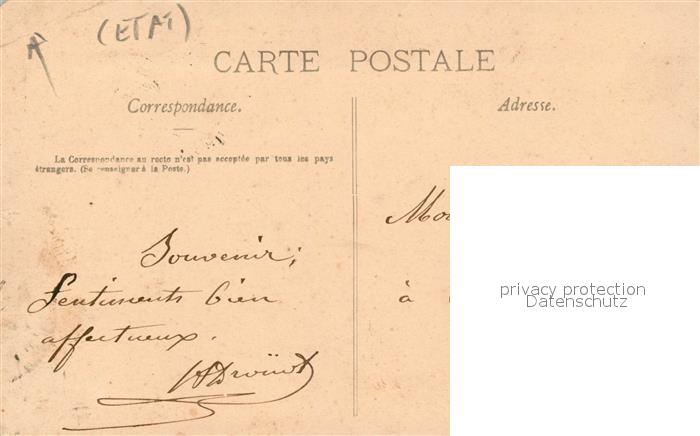 (ETAT)
CARTE POSTALE
Correspondance.
Adresse.
La Correspondance au recto n'est pas acceptée par tous les pays
étrangers. (Se renseigner à la Poste.)
Souvenir;
Sentiments bien
affectueux.
à
privacy protection
Datenschutz